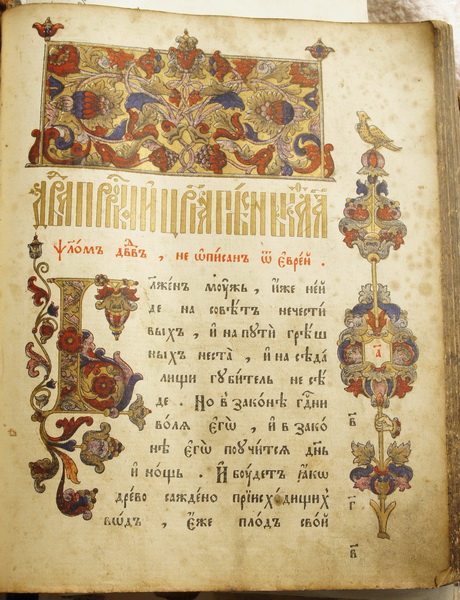 ѱло́мъ дв҃дв҃ъ , не ѡ҆пи́санъ ѿ є҆вре́й .
Бл҃же́нъ мѹ́жь , и҆́же не и҆́-
де на совѣ́тъ нечести́-
выхъ , и҆ на пѹти́ грѣ́ш-
ныхъ не ста̀ , и҆ на сѣда́-
лищи гѹби́тель не сѣ́-
де . Но в҆ зако́нѣ гд҇ни
во́лѧ є҆гѡ̀ , и҆ в҆ зако́-
нѣ є҆гѡ̀ поѹчи́тсѧ дн҃ь
и҆ но́щь . И҆ бѹ́детъ ꙗ҆́кѡ
дре́во сажде́но при и҆схо́дищихъ
во́дъ , є҆́же пло́дъ сво́й
а҃
в҃
г҃